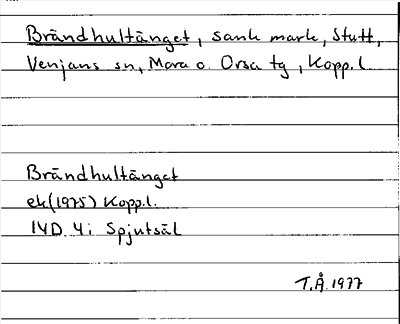 Brändhultänget, sank mark, Stutt,
Venjans sn, Mora o. Orsa tg, Kopp.l.
Brändhultänget
ek(1975) Kopp.l.
14D 4i Spjutsäl
T.Å 1977